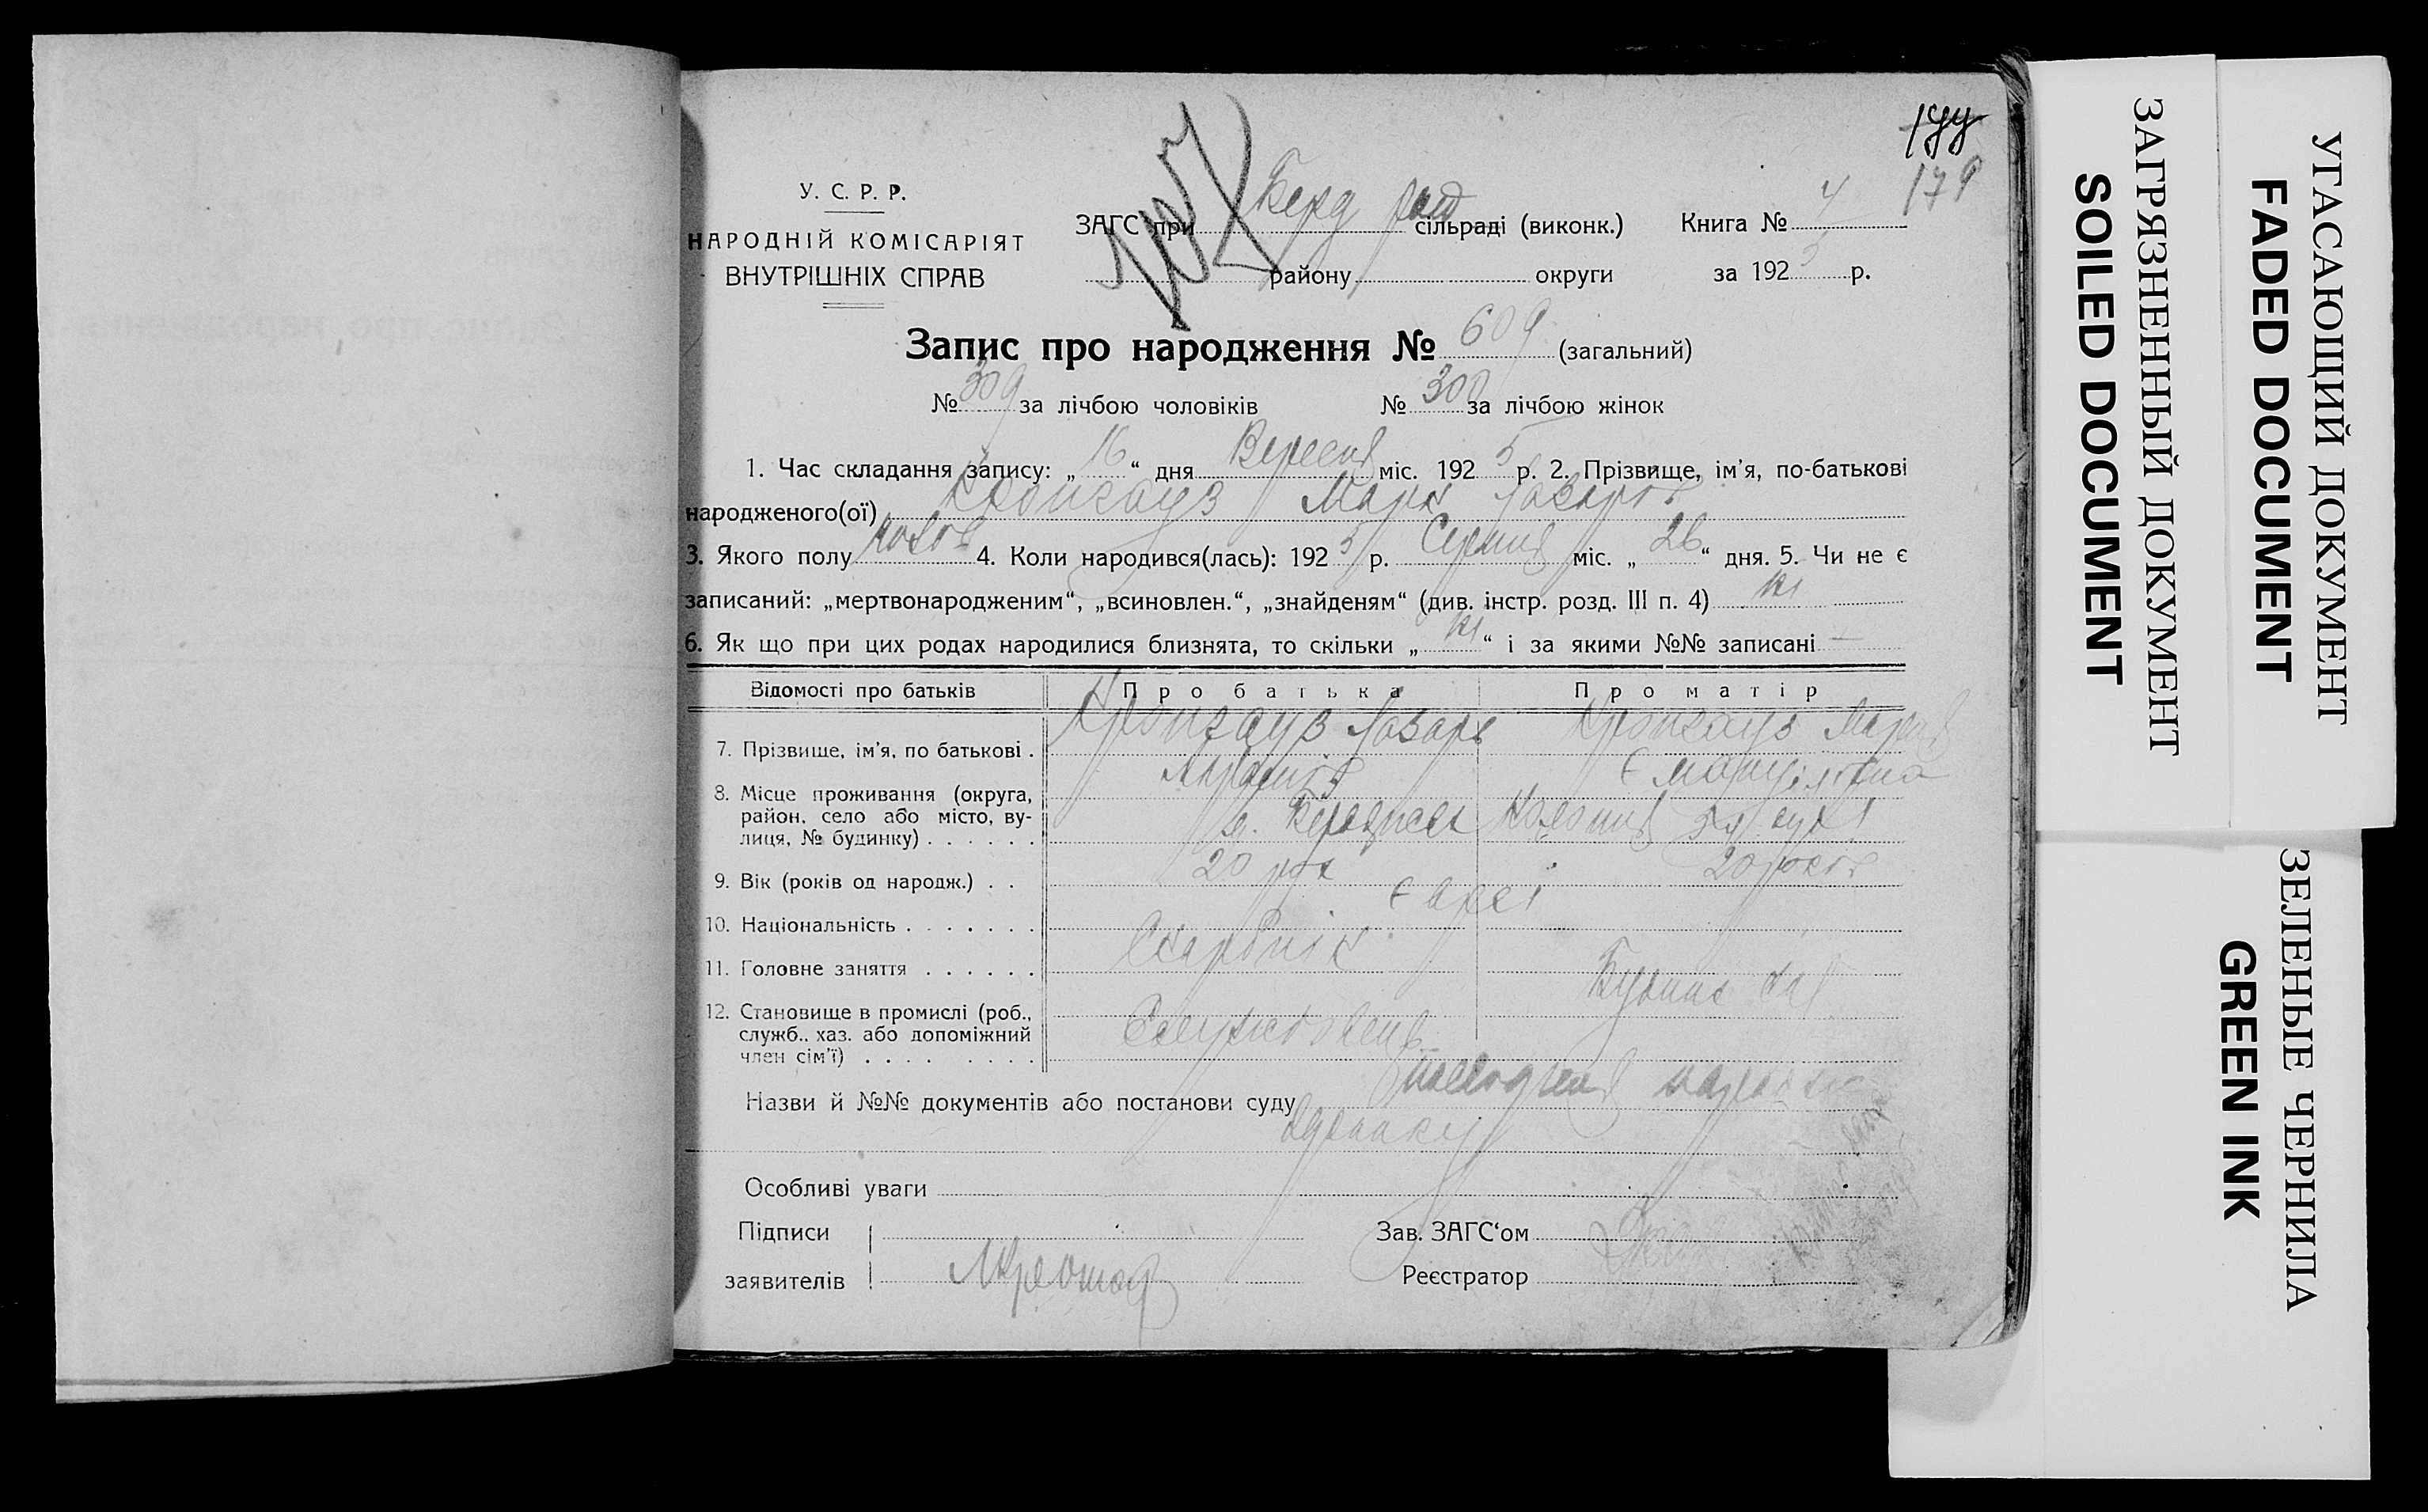 177
179
У. С. Р. Р.
НАРОДНІЙ КОМІСАРІЯТ
ВНУТРІШНІХ СПРАВ
ЗАГС при Берд рай сільраді (виконк.) Книга № 4
району округи за 1925 р.
Запис про народження № 609 (загальний)
№ 309 за лічбою чоловіків № 300 за лічбою жінок
1. Час складання запису: „16“ дня Вересня міс. 1925 р. 2. Прізвище, ім'я, по-батькові
народженого(ої) Кронгауз Марк Лазаров
3. Якого полу чолов 4. Коли народився(лась): 1925 р. Серпня міс. „26“ дня. 5. Чи не є
записаний: „мертвонародженим“, „всиновлен.“, „знайденям“ (див. інстр. розд. III п. 4) ні
6. Як що при цих родах народилися близнята, то скільки „ні“ і за якими №№ записані —
Відомості про батьків Про батька Про матір
7. Прізвище, ім'я, по батькові . Кронгауз Лазарь Кронгауз Марія
8. Місце проживання (округа,
район, село або місто, ву-
лиця, № будинку) . . . . . . м. Бердичев
9. Вік (років од народж.) . . 20 рок 20 років
10. Національність . . . . . . . євреї
11. Головне заняття . . . . . .
12. Становище в промислі (роб.,
служб., хаз. або допоміжний
член сім'ї) . . . . . . . .
Назви й №№ документів або постанови суду
Особливі уваги
Підписи
заявителів
Зав. ЗАГС'ом
Реєстратор
ЗАГРЯЗНЕННЫЙ ДОКУМЕНТ
SOILED DOCUMENT
УГАСАЮЩИЙ ДОКУМЕНТ
FADED DOCUMENT
ЗЕЛЕНЫЕ ЧЕРНИЛА
GREEN INK